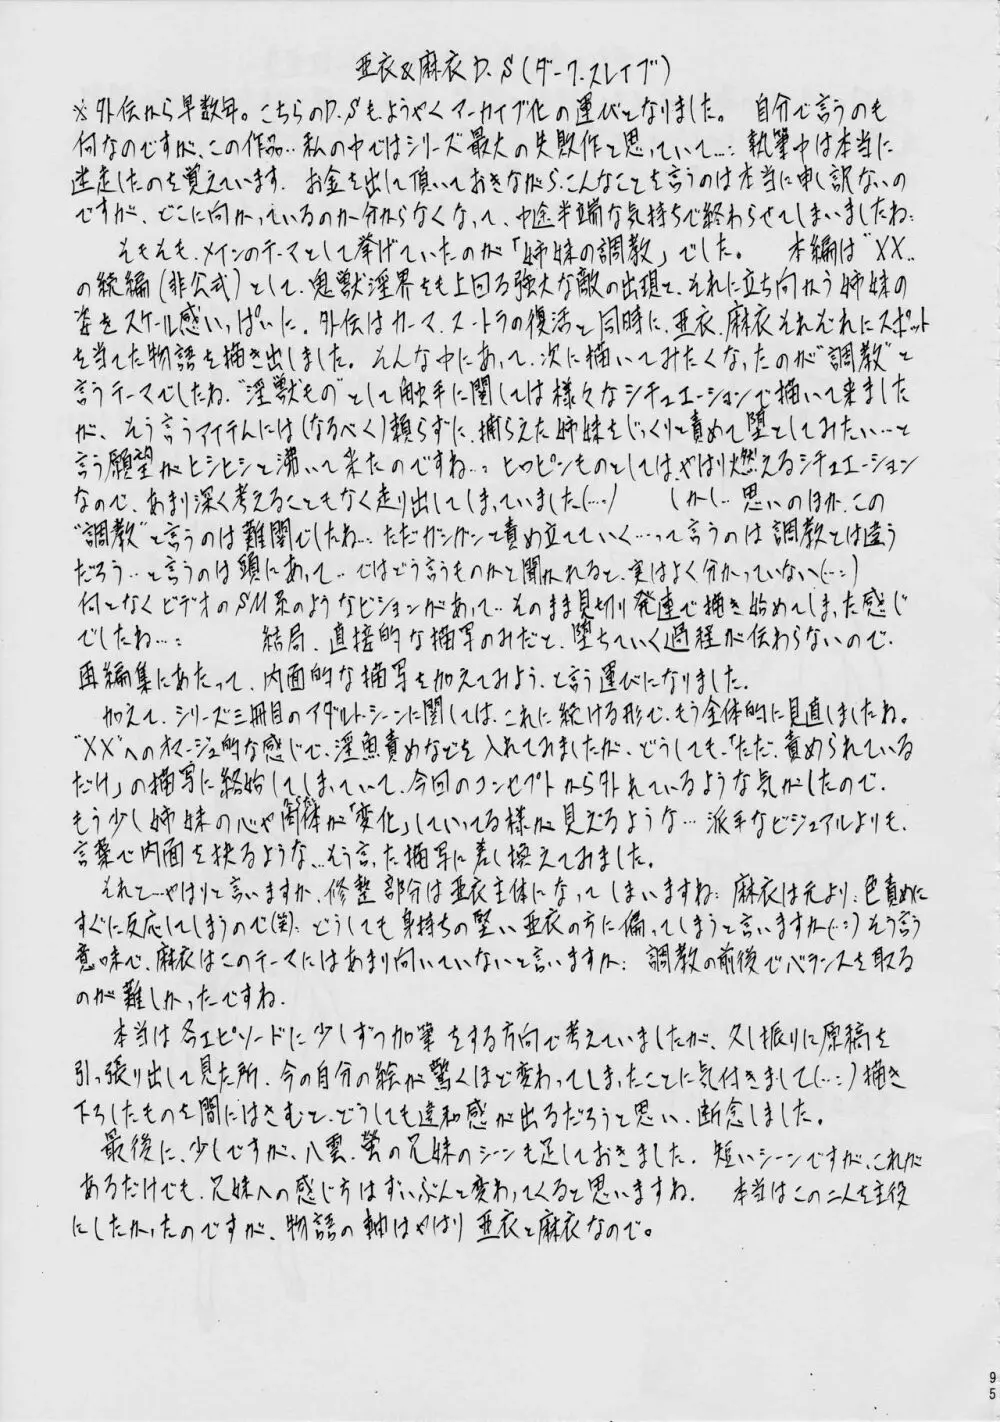 亜衣&麻衣D.S(ダーク.スレイブ)
※外伝から早数年。こちらのD.Sもようやくアーカイブ化の運びとなりました。 自分で言うのも
何なのですが、この作品‥私の中ではシリーズ最大の失敗作と思っていて…:執筆中は本当に
迷走したのを覚えています. お金を出して頂いておきながら、こんなことを言うのは本当に申し訳ないの
ですが、どこに向かっているのか分からなくなって、中途半端な気持ちで終わらせてしまいましたね:
そもそも、メインのテーマとして挙げていたのが「姉妹の調教」でした。 本編は"XX‥
の続編(非公式)として、鬼獣淫界をも上回る強大な敵の出現と、それに立ち向かう姉妹の
姿をスケール感いっぱいに、外伝はカーマ.スートラの復活と同時に、亜衣、麻衣それぞれにスポット
を当てた物語を描き出しました。そんな中にあって、次に描いてみたくなったのが"調教"と
言うテーマでしたね."淫獣もの"として触手に関しては様々なシチュエーションで描いて来ました
が、そう言うアイテムには(なるべく)頼らずに、捕らえた姉妹をじっくりと責めて堕としてみたい…と
言う願望がヒシヒシと沸いて来たのですね‥:ヒロピンものとしては、やはり燃えるシチュエーション
なので、あまり深く考えることもなく走り出してしまっていました(…;) しかし‥思いのほか、この
"調教"と言うのは難関でしたね…:ただガシガシと責め立てていく…って言うのは調教とは違う
だろう‥と言うのは頭にあって‥ではどう言うものかと聞かれると、実はよく分かっていない(…:)
何となくビデオのSM系のようなビジョンがあって‥そのまま見切り発連で描き始めてしまった感じ
でしたね…: 結局、直接的な描写のみだと、堕ちていく過程が伝わらないので、
再編集にあたって、内面的な描写を加えてみよう、と言う運びになりました。
加えて、シリーズ三冊目のアダルト・シーンに関しては、これに続ける形で、もう全体的に見直しましたね。
"XX"へのオマージュ的な感じで、淫魚責めなどを入れてみましたが、どうしても、「ただ、責められている
だけ」の描写に終始してしまっていて、今回のコンセプトから外れているような気がしたので、
もう少し姉妹の心や肉体が「変化」していってる様が見えるような…派手なビジュアルよりも、
言葉で内面を抉るような…そう言った描写に差し換えてみました。
それと…やはりと言いますか、修整部分は亜衣主体になってしまいますね:麻衣は元より、色責めに
すぐに反応してしまうので(笑):どうしても身持ちの堅い亜衣の方に偏ってしまうと言いますか(…:)そう言う
意味で、麻衣はこのテーマにはあまり向いていないと言いますか: 調教の前後でバランスを取る
のが難しかったですね.
本当は各エピソードに少しずつ加筆をする方向で考えていましたが、久し振りに原稿を
引っ張り出して見た所、今の自分の絵が驚くほど変わってしまったことに気付きまして(…:)描き
下ろしたものを間にはさむと、どうしても違和感が出るだろうと思い、断念しました。
最後に、少しですが、八雲、蛍の兄妹のシーンも足しておきました. 短いシーンですが、これが
あるだけでも、兄妹への感じ方はずいぶんと変わってくると思いますね. 本当はこの二人を主役
にしたかったのですが、物語の軸はやはり亜衣と麻衣なので。
95